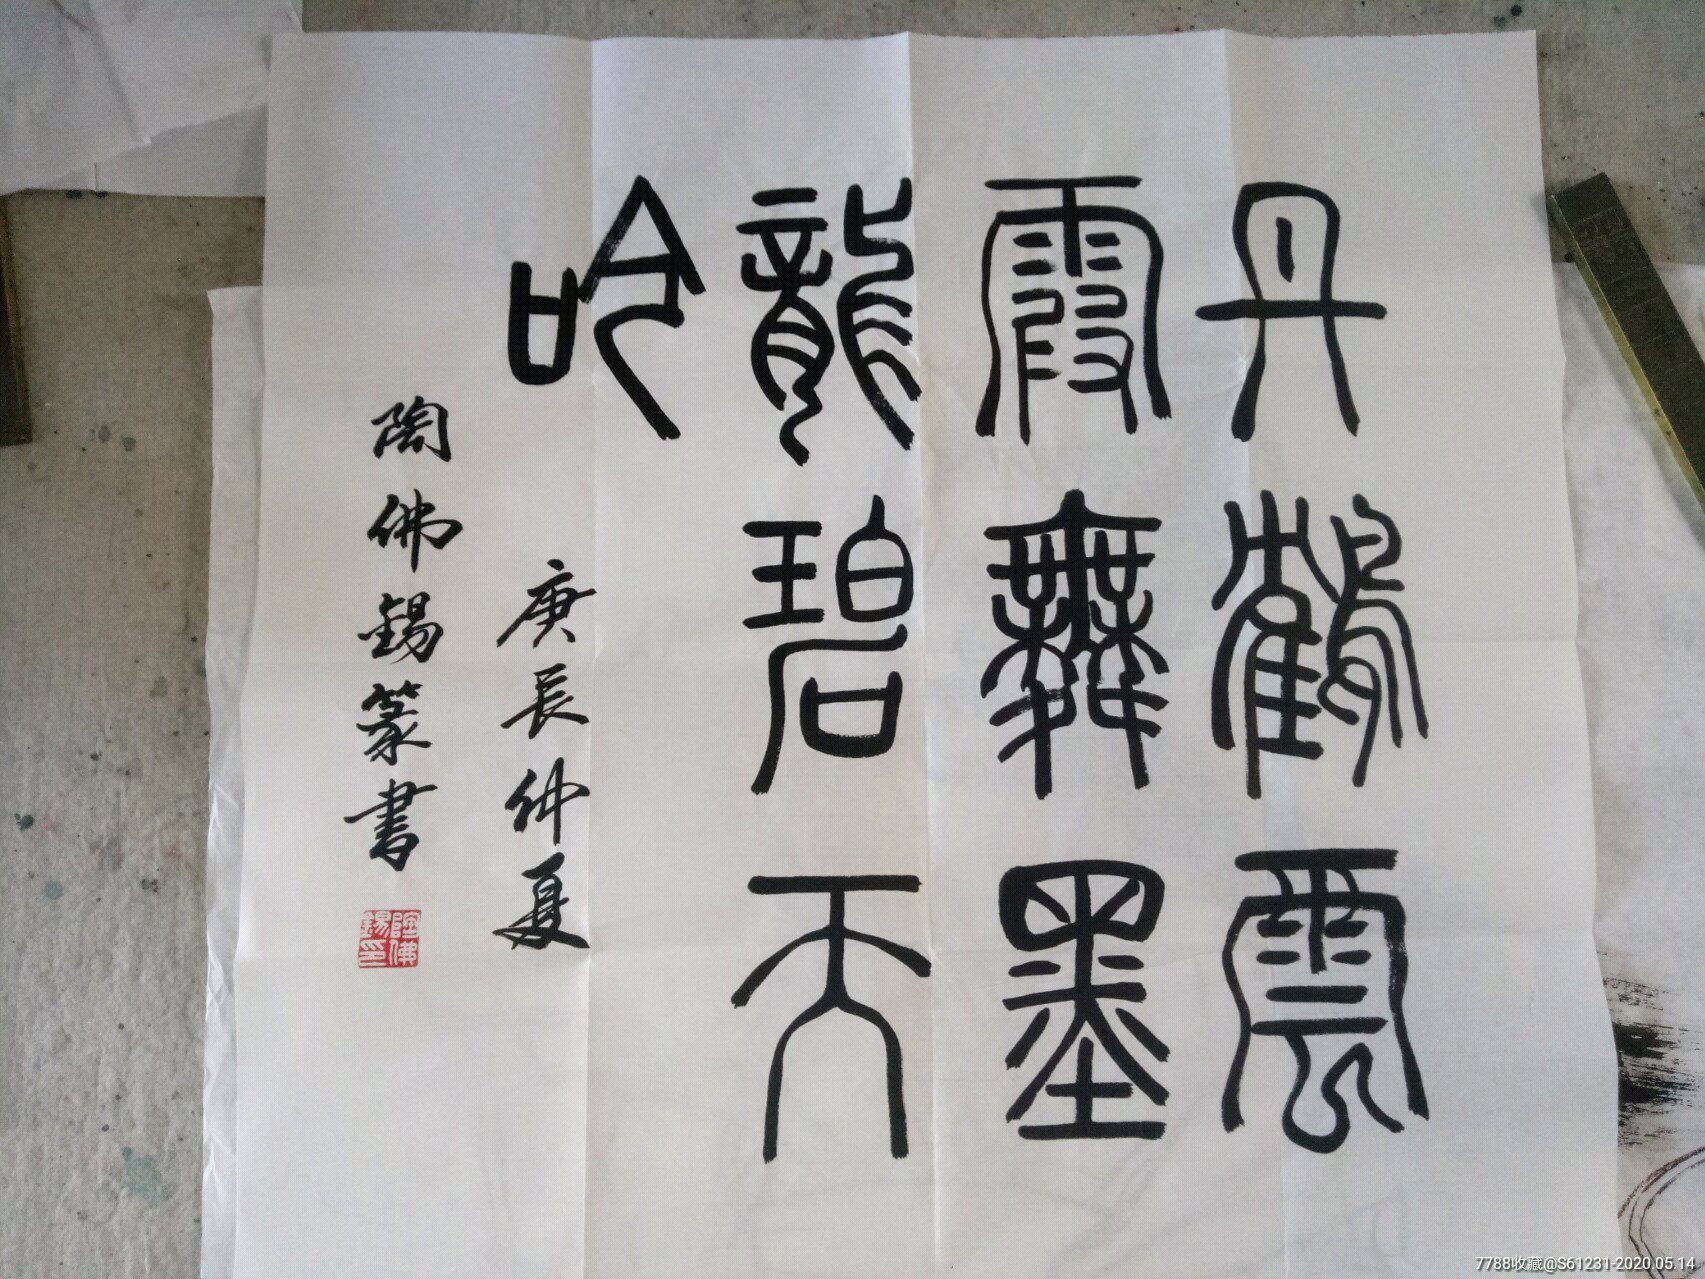 丹鶴雲
霞舞墨
龍碧天
吟
庚長仲夏
陶佛錫篆書
陶佛錫印
7788收藏@S61231-2020.05.14